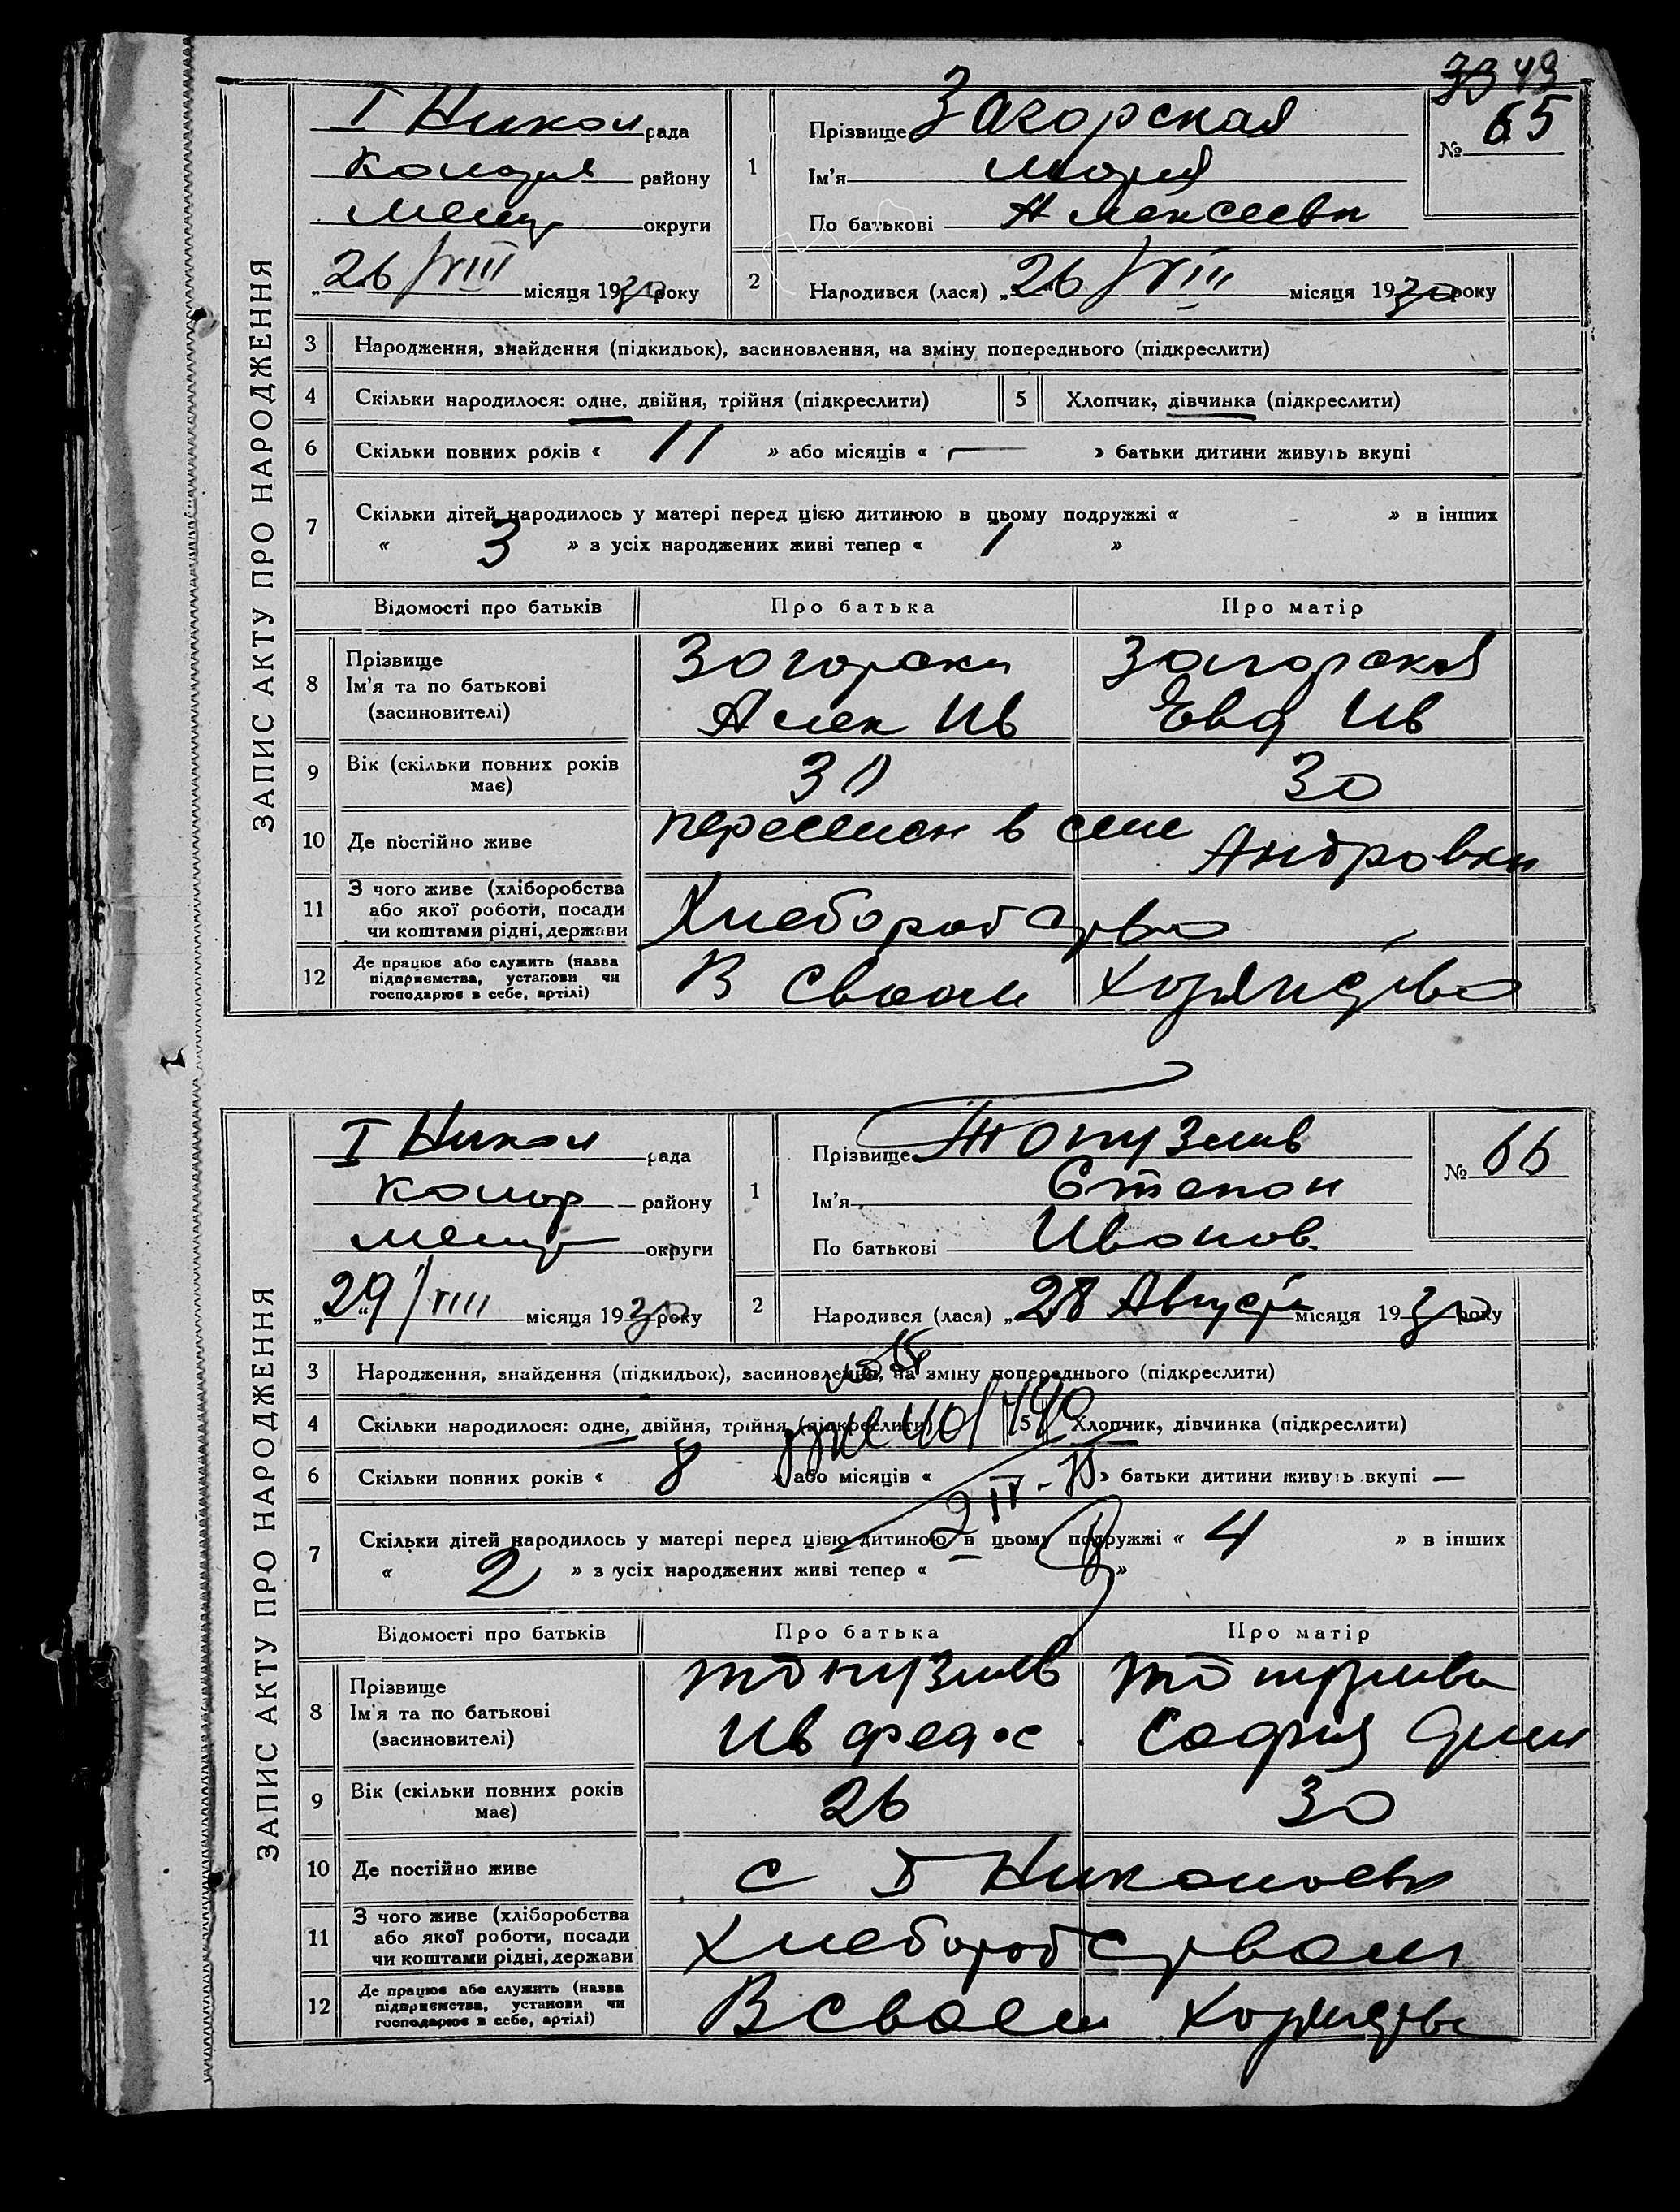 33 43
ЗАПИС АКТУ ПРО НАРОДЖЕННЯ
I Никол рада
района району
округи
„26/VIII місяця 1930 року
1
Прізвище Загорская
Ім'я Мария
По батькові Алексеевн
№ 65
2
Народився (лася) „26/VIII місяця 1930 року
3 Народження, знайдення (підкидьок), засиновлення, на зміну попереднього (підкреслити)
4 Скільки народилося: одне, двійня, трійня (підкреслити) 5 Хлопчик, дівчинка (підкреслити)
6 Скільки повних років « 11 » або місяців « — » батьки дитини живуть вкупі
7 Скільки дітей народилось у матері перед цією дитиною в цьому подружжі « - » в інших
« 3 » з усіх народжених живі тепер « 1 »
Відомості про батьків Про батька Про матір
8 Прізвище Ім'я та по батькові (засиновителі)
Загорски Загорская
Алек Ив Евд Ив
9 Вік (скільки повних років має) 30
10 Де постійно живе в селе Андровки
11 З чого живе (хліборобства або якої роботи, посади чи коштами рідні, держави Хлеборобство
12 Де працює або служить (назва підприємства, установи чи господарює в себе, артілі) В своем
ЗАПИС АКТУ ПРО НАРОДЖЕННЯ
I Никол рада
району
округи
„29/VIII місяця 1930 року
1
Прізвище Топузлив
Ім'я Степан
По батькові Иванов.
№ 66
2
Народився (лася) „28 Августа місяця 1930 року
3 Народження, знайдення (підкидьок), засиновлення, на зміну попереднього (підкреслити)
4 Скільки народилося: одне, двійня, трійня (підкреслити) 5 Хлопчик, дівчинка (підкреслити)
6 Скільки повних років « 8 » або місяців « » батьки дитини живуть вкупі —
7 Скільки дітей народилось у матері перед цією дитиною в цьому подружжі « 4 » в інших
« 2 » з усіх народжених живі тепер « »
Відомості про батьків Про батька Про матір
8 Прізвище Ім'я та по батькові (засиновителі)
Топузлив
Ив София
9 Вік (скільки повних років має) 26 30
10 Де постійно живе с I
11 З чого живе (хліборобства або якої роботи, посади чи коштами рідні, держави Хлеборобством
12 Де працює або служить (назва підприємства, установи чи господарює в себе, артілі) В своем